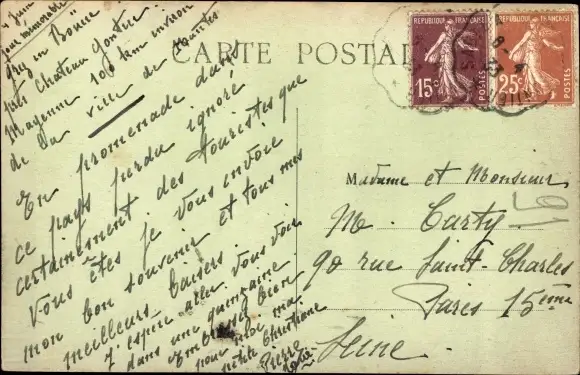 "Juin
Grez en Bouère
près Chateau Gontier
Mayenne 100 km environ
de la ville de Nantes
En promenade dans
ce pays perdu ignoré
certainement des touristes que
vous êtes je vous envoie
mon bon souvenir et tous mes
meilleurs baisers
J'espère aller vous voir
dans une quinzaine
Embrassez bien
pour moi ma
petite Christiane
Pierre
CARTE POSTALE
REPUBLIQUE FRANÇAISE
15c
POSTES
REPUBLIQUE FRANÇAISE
25c
POSTES
8-4
33
Madame et Monsieur
M. Carty
90 rue Saint-Charles
Paris 15ème
Seine